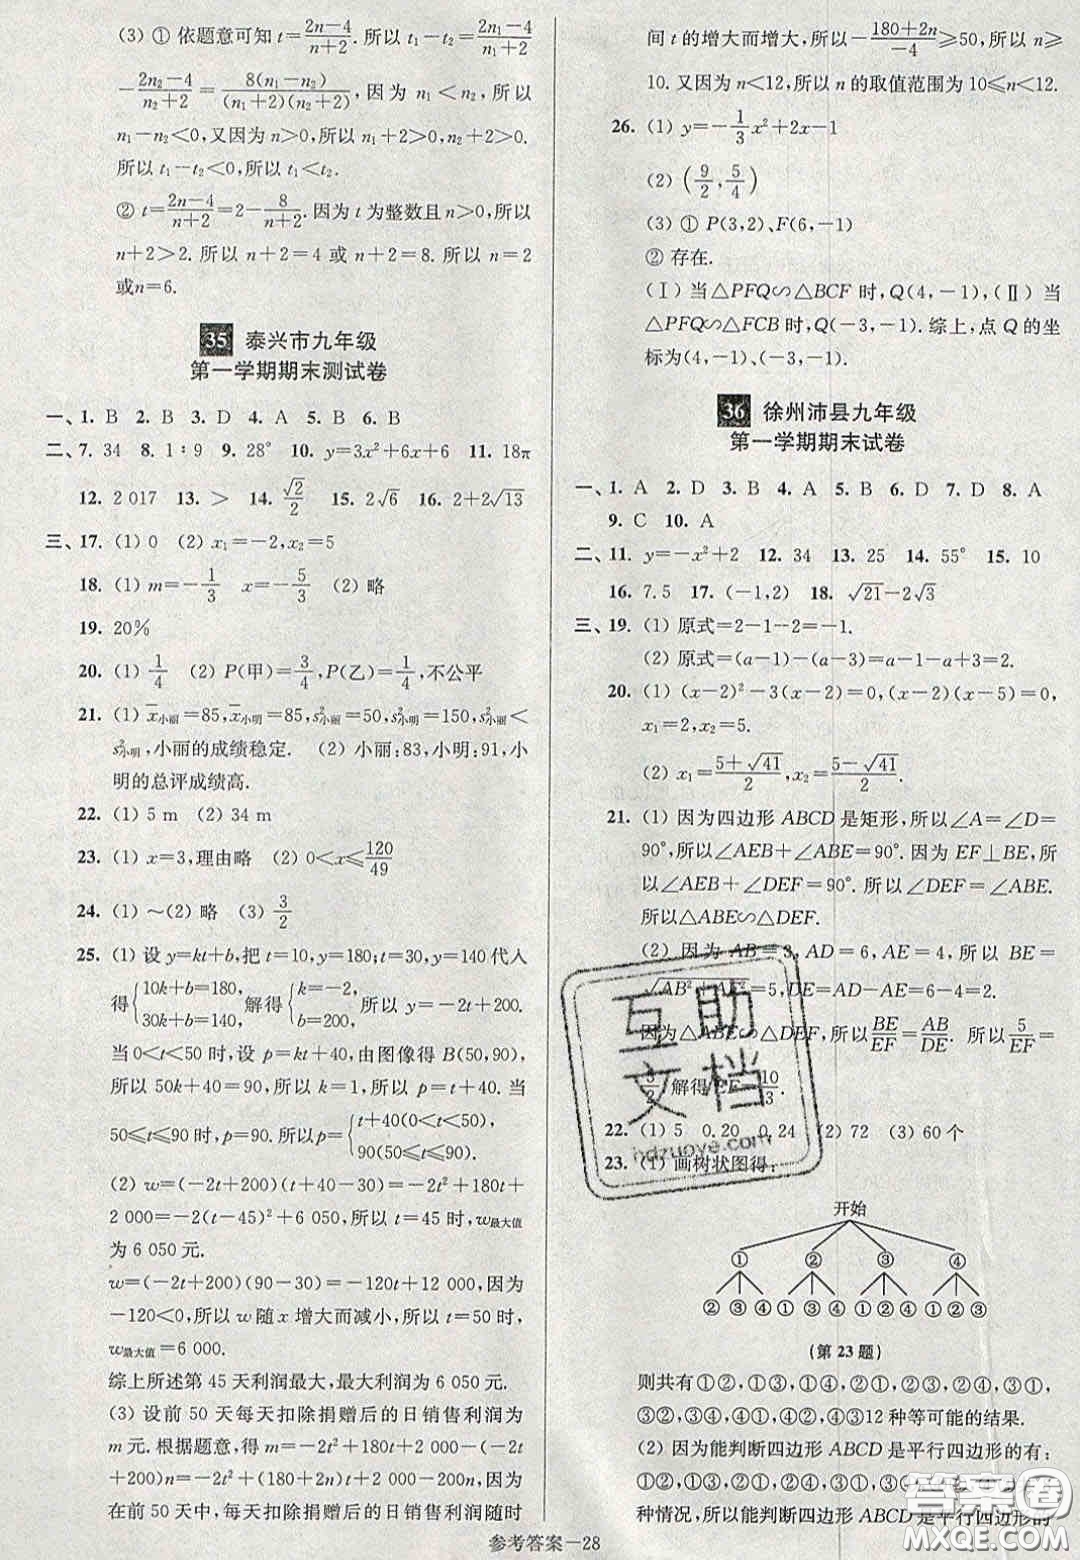 (3) ① 依题意可知 t=\frac{2n-4}{n+2}. 所以 t₁-t₂=\frac{2n₁-4}{n₁+2}
-\frac{2n₂-4}{n₂+2}=\frac{8(n₁-n₂)}{(n₁+2)(n₂+2)},因为 n₁<n₂,所以
n₁-n₂<0,又因为 n>0,所以 n₁+2>0,n₂+2>0.
所以 t₁-t₂<0,所以 t₁<t₂.
② t=\frac{2n-4}{n+2}=2-\frac{8}{n+2}. 因为 t 为整数且 n>0,所以
n+2>2. 所以 n+2=4 或 n+2=8. 所以 n=2
或n=6.
35 泰兴市九年级
第一学期期末测试卷
一、1. B 2. B 3. D 4. A 5. B 6. B
二、7. 34 8. 1∶9 9. 28° 10. y=3x²+6x+6 11. 18π
12. 2 017 13. > 14. \frac{√2}{2} 15. 2√6 16. 2+2√13
三、17. (1) 0 (2) x₁=-2,x₂=5
18. (1) m=-\frac{1}{3} x=-\frac{5}{3} (2) 略
19. 20%
20. (1) \frac{1}{4} (2) P(甲)=\frac{3}{4},P(乙)=\frac{1}{4},不公平
21. (1) x̄小丽=85,x̄小明=85,s²小丽=50,s²小明=150,s²小丽<
s²小明,小丽的成绩稳定. (2) 小丽:83,小明:91,小
明的总评成绩高.
22. (1) 5 m (2) 34 m
23. (1) x=3,理由略 (2) 0<x≤\frac{120}{49}
24. (1)~(2) 略 (3) \frac{3}{2}
25. (1) 设 y=kt+b,把 t=10,y=180;t=30,y=140 代人
得{10k+b=180, 30k+b=140, 解得{k=-2, b=200, 所以 y=-2t+200.
当 0<t<50 时,设 p=kt+40,由图像得 B(50,90),
所以 50k+40=90,所以 k=1,所以 p=t+40. 当
50≤t≤90 时,p=90. 所以p={t+40(0<t<50), 90(50≤t≤90).
(2) w=(-2t+200)(t+40-30)=-2t²+180t+
2 000=-2(t-45)²+6 050,所以 t=45 时,w最大值
为 6 050 元.
w=(-2t+200)(90-30)=-120t+12 000,因为
-120<0,所以 w 随 x 增大而减小,所以 t=50 时,
w最大值=6 000.
综上所述第 45 天利润最大,最大利润为 6 050 元.
(3) 设前 50 天每天扣除捐赠后的日销售利润为
m元. 根据题意,得 m=-2t²+180t+2 000-n(-2t
+200)=-2t²+(180+2n)t+2 000-200n,因为
在前 50 天中,每天扣除捐赠后的日销售利润随时
间 t 的增大而增大,所以-\frac{180+2n}{-4}≥50,所以 n≥
10. 又因为 n<12,所以 n 的取值范围为 10≤n<12.
26. (1) y=-\frac{1}{3}x²+2x-1
(2) (\frac{9}{2},\frac{5}{4})
(3) ① P(3,2)、F(6,-1)
② 存在.
(Ⅰ) 当△PFQ∽△BCF 时,Q(4,-1),(Ⅱ) 当
△PFQ∽△FCB 时,Q(-3,-1). 综上,点 Q 的坐
标为(4,-1)、(-3,-1).
36 徐州沛县九年级
第一学期期末试卷
一、1. A 2. D 3. B 4. A 5. B 6. D 7. D 8. A
9. C 10. A
二、11. y=-x²+2 12. 34 13. 25 14. 55° 15. 10
16. 7.5 17. (-1,2) 18. √21-2√3
三、19. (1) 原式=2-1-2=-1.
(2) 原式=(a-1)-(a-3)=a-1-a+3=2.
20. (1) (x-2)²-3(x-2)=0,(x-2)(x-5)=0,
x₁=2,x₂=5.
(2) x₁=\frac{5+√41}{2},x₂=\frac{5-√41}{2}.
21. (1) 因为四边形 ABCD 是矩形,所以∠A=∠D=
90°,所以∠AEB+∠ABE=90°. 因为 EF⊥BE,所
以∠AEB+∠DEF=90°. 所以∠ABE=∠DEF.
所以△ABE∽△DEF.
(2) 因为 AB=3,AD=6,AE=4,所以 BE=
√AB²+AE²=5,DE=AD-AE=6-4=2.
因为△ABE∽△DEF,所以\frac{BE}{EF}=\frac{AB}{DE}. 所以\frac{5}{EF}=
\frac{3}{2},解得 EF=\frac{10}{3}.
22. (1) 5 0.20 0.24 (2) 72 (3) 60 个
23. (1) 画树状图得:
开始
① ② ③ ④
② ③ ④ ① ③ ④ ① ② ④ ① ② ③
(第 23 题)
则共有①②,①③,①④,②①,②③,②④,③①,
③②,③④,④①,④②,④③12 种等可能的结果.
(2) 因为能判断四边形 ABCD 是平行四边形的有:
①②,①③,②①,②④,③①,③④,④②,④③
种情况,所以能判断四边形 ABCD 是平行四边形的
参考答案—28
互助
文档
hdzuoye.com
答案圈
MXQE.COM